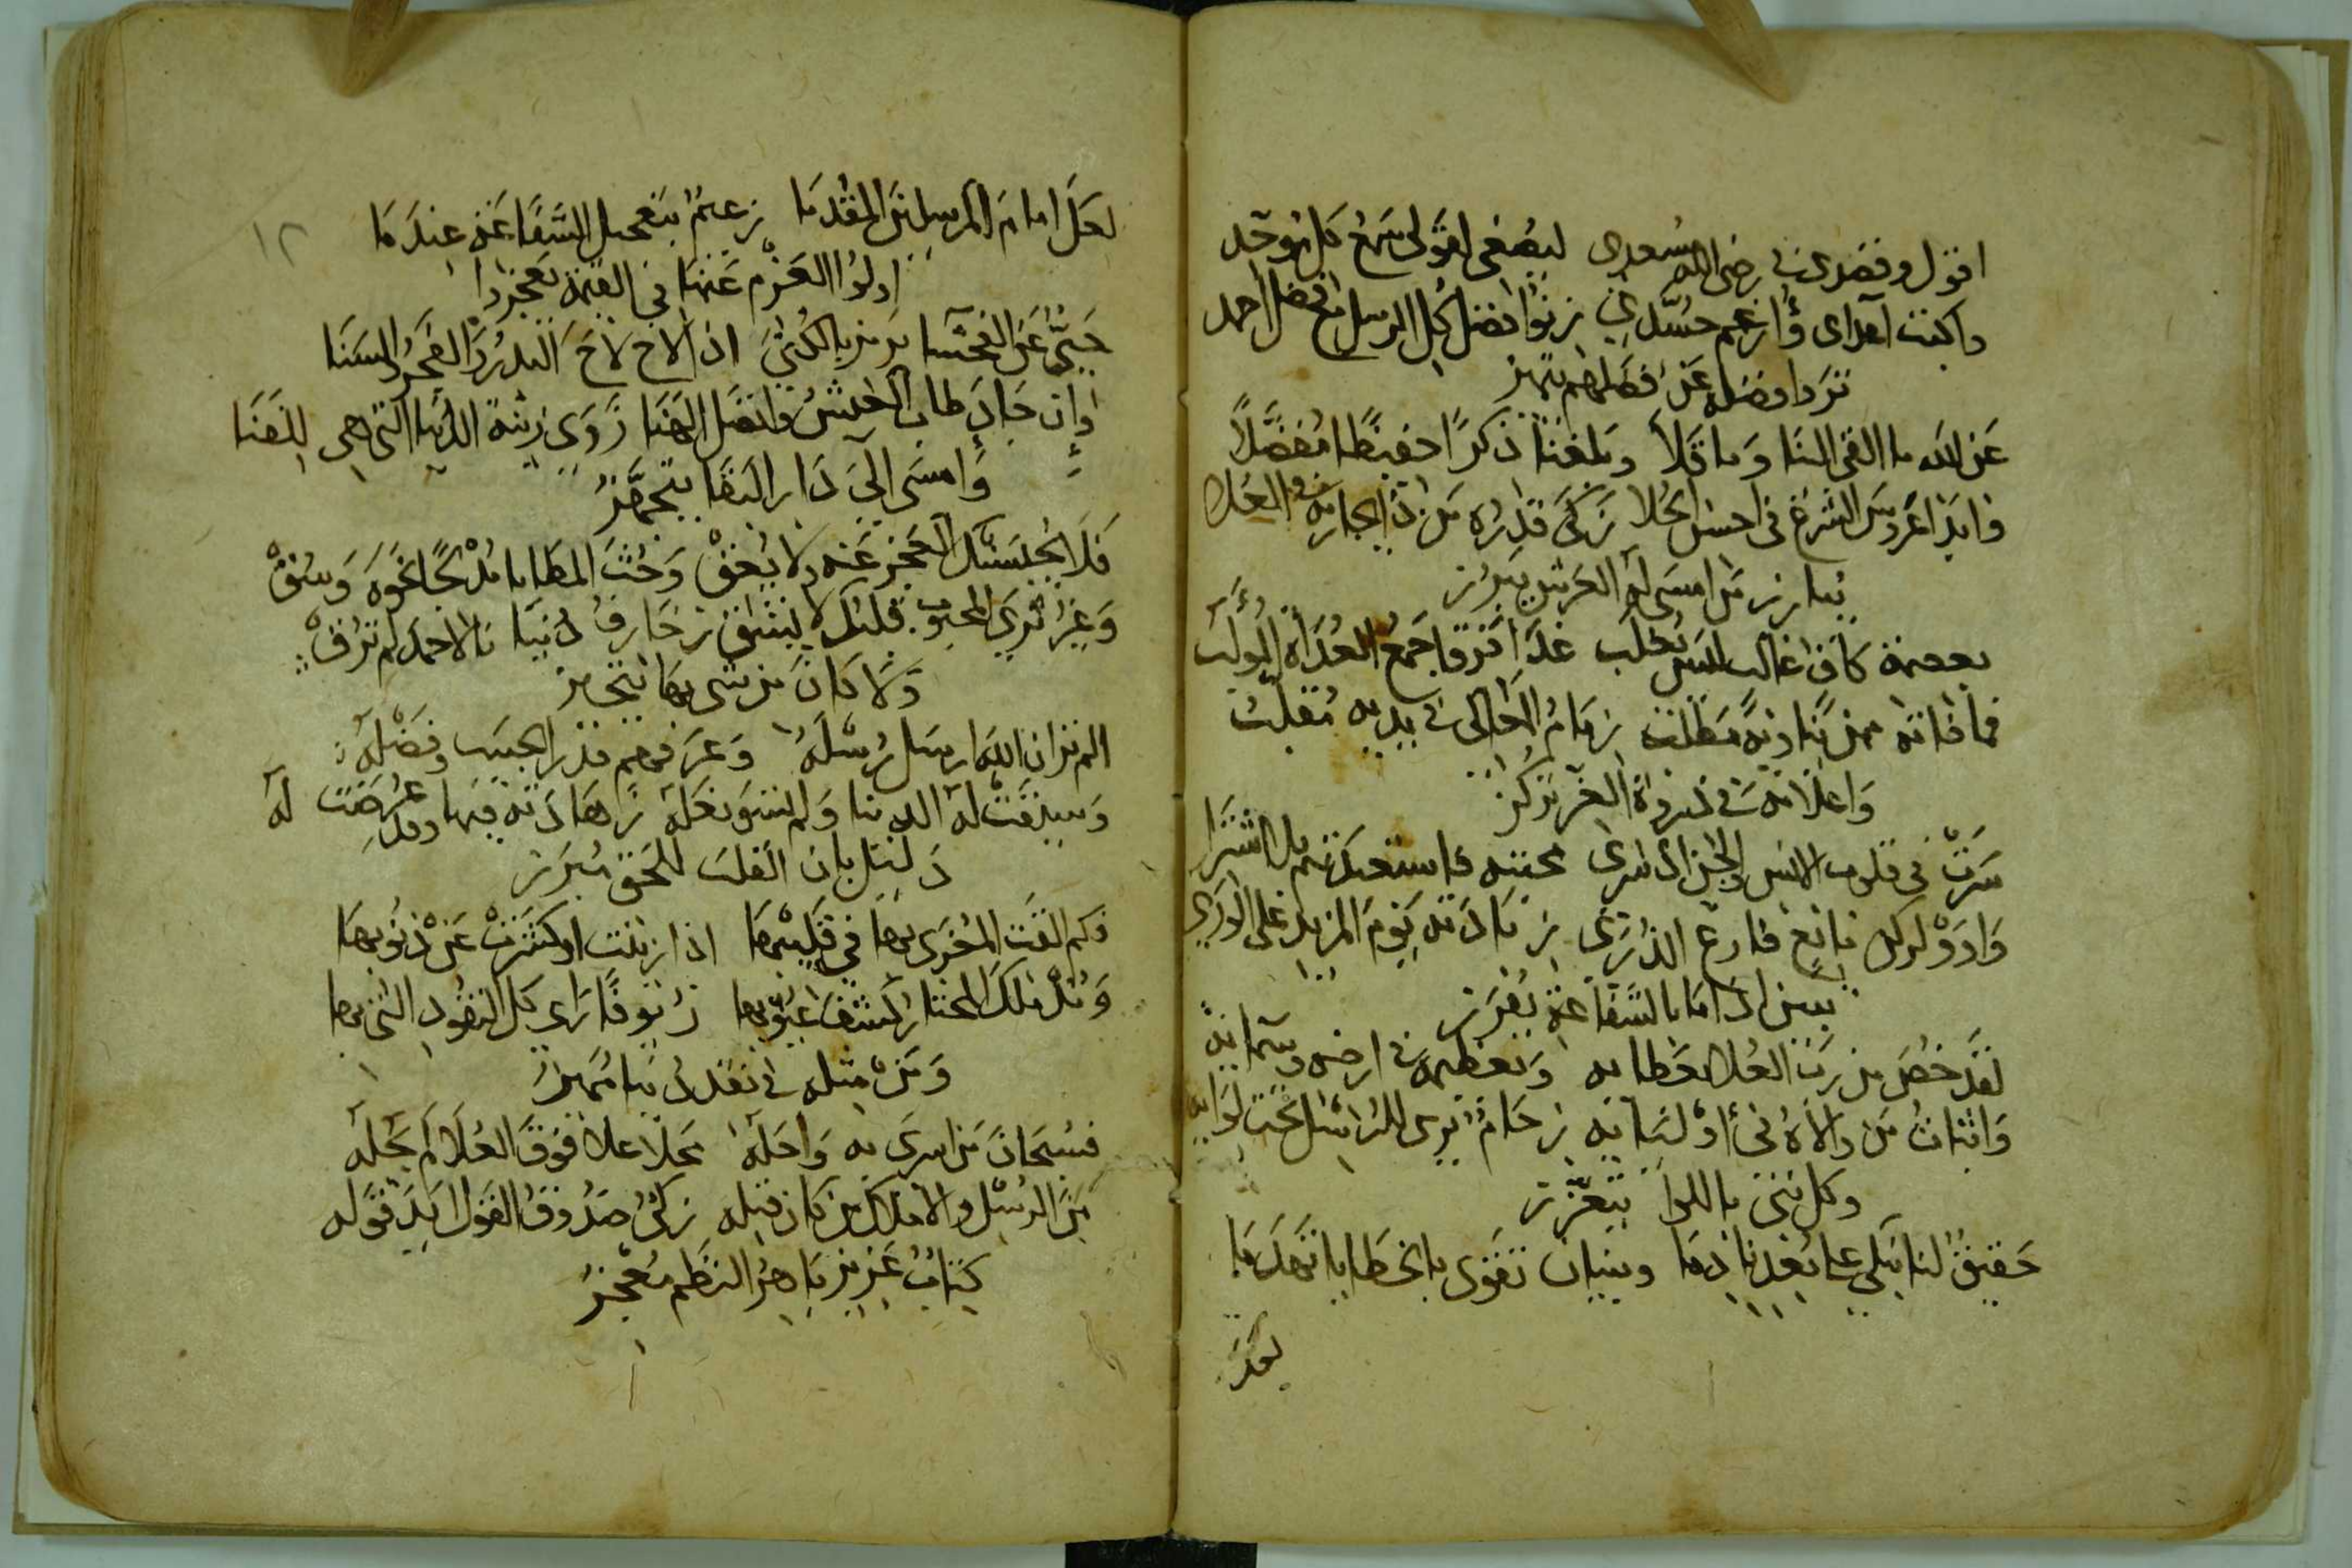 اقول وقصدي في رضى الله مسعدي ليصغي لقولى سمع كل موحد
واكبت اعداى وارغم حسدي زنوا فضل كل الرسل مع فضل احمد
تروا فضله عن فضلهم يتميز
عن الله ما القى الينا وما تلا وبلغنا ذكرا حفيظا مفصلا
فابدا عروس الشرع في احسن الحلا زكى قدره من ذا يجاريه في العلا
يبارز من امسى له العرش يبرز
بعصمة كاف غالب ليس يغلب غدا فرقا جمع العداة المولب
فما فاته ممن يناويه مطلب زمام المعالى في يديه مقلب
واعلامه في ذروة العز تركز
سرت في قلوب الانس والجن اذ سرى محبته فاستعبدتهم بلا اشترا
واروو لركن مانع فارع الذرى زيادته يوم المزيد على الورى
يبين اذا ما بالشفاعة يفرز
لقد خص من رب العلا بعطايه وتعظيمه في ارضه وسمايه
واثبات من والاه في اوليايه زحام يرى للرسل تحت لوايه
وكل نبي باللوا يتعزز
حقيق لنا نبكي على بعدنا دما وبنيان تقوى بالخطايا تهدما
لعل
لعل امام المرسلين المقدما زعيم بتعجيل الشفاعة عندما
اولوا العزم عنها في القيمة تعجز
حيي عن الفحشا يرمز بالكنى اذا لاح لاح البدر والفجر والسنا
وان جاد طاب العيش واتصل الهنا زوى زينة الدنيا التى هى للفنا
وامسى الى دار البقا يتجهز
فلا يجلسنك العجز عنه ولا يعق وحث المطايا مدلجا نحوه وسق
وغير ثرى المحبوب قلبك لا يشق زخارف دنيا نا لاحمد لم ترق
ولا كان من شى بها يتحيز
الم تر ان الله ارسل رسله وعرفهم قدر الحبيب وفضله
وسيقت له الدنيا ولم تسو نعله زهادته فيها وقد عرضت له
دليل بان القلب للحق مبرز
وكم القت المغرى بها في قليبها اذا زينت او كشرت عن نيوبها
ومذ ملك المختار كشف عيوبها زيوفا راى كل النقود التى بها
ومن مثله في نقد دنيا مميز
فسبحان من اسرى به واحله محلا علا فوق العلا لم يحله
من الرسل والاملاك من كان قبله زكى صدوق القول ايد قوله
كتاب عزيز باهر النظم معجز
١٢